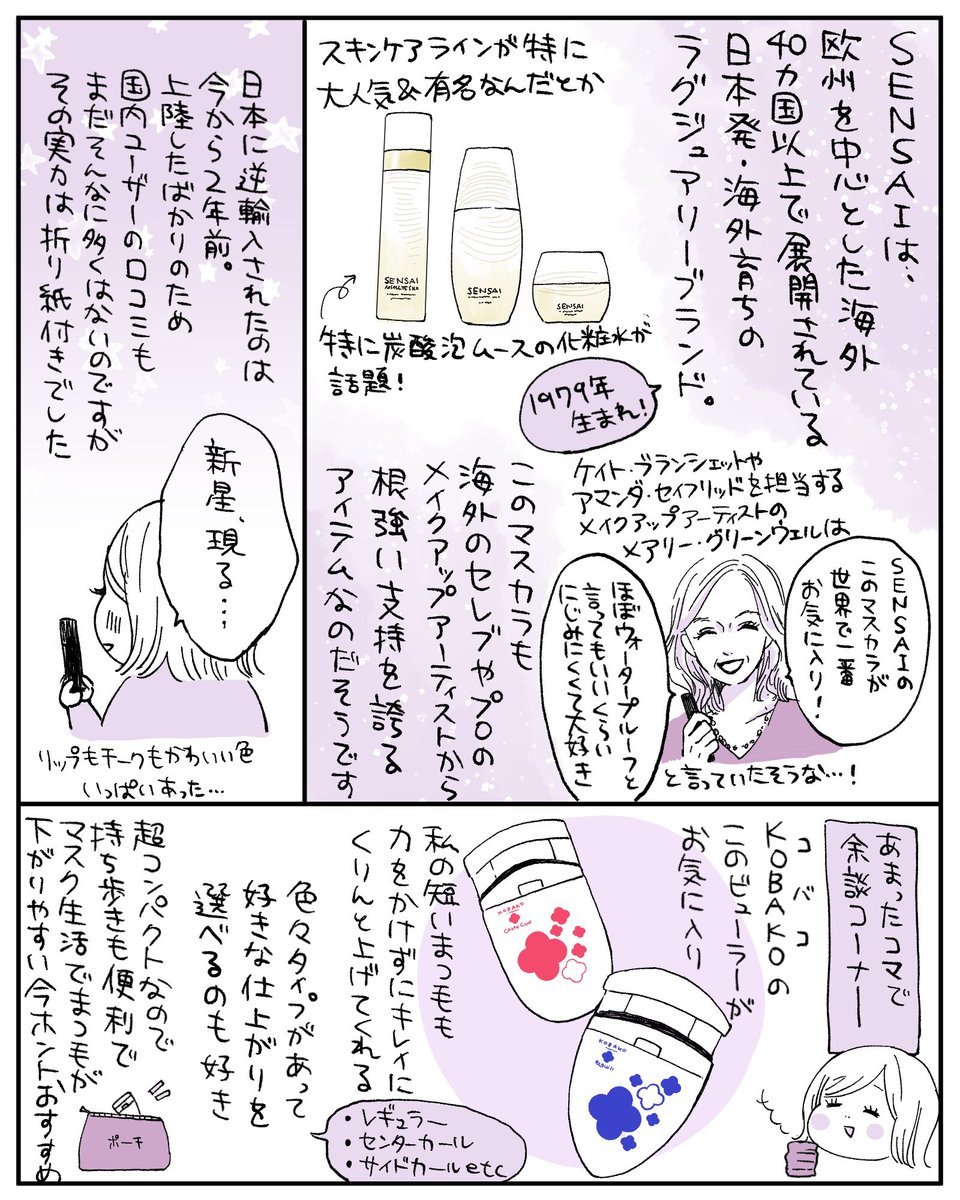 SENSAIは、
欧州を中心とした海外
40カ国以上で展開されている
日本発・海外育ちの
ラグジュアリーブランド。
1979年
生まれ!
スキンケアラインが特に
大人気&有名なんだとか
SENSAI
SENSAI
SENSAI
特に炭酸泡ムースの化粧水が
話題!
ケイト・ブランシェットや
アマンダ・セイフリッドを担当する
メイクアップアーティストの
メアリー・グリーンウェルは
SENSAIの
このマスカラが
世界で一番
お気に入り!
ほぼウォータープルーフと
言ってもいいくらい
にじみにくくて大好き
と言っていたそうな…!
このマスカラも
海外のセレブやプロの
メイクアップアーティストから
根強い支持を誇る
アイテムなのだそうです
日本に逆輸入されたのは
今から2年前。
上陸したばかりのため
国内ユーザーの口コミも
まだそんなに多くはないのですが
その実力は折り紙付きでした
新星、現る…
リップもチークもかわいい色
いっぱいあった…
あまったコマで
余談コーナー
コバコ
KOBAKOの
このビューラーが
お気に入り
KOBAKO
KOBAKO
私の短いまつ毛も
力をかけずにキレイに
くりんと上げてくれる
色々タイプがあって
好きな仕上がりを
選べるのも好き
・レギュラー
・センターカール
・サイドカールetc
超コンパクトなので
持ち歩きも便利で
マスク生活でまつ毛が
下がりやすい今ホントおすすめ
ポーチ